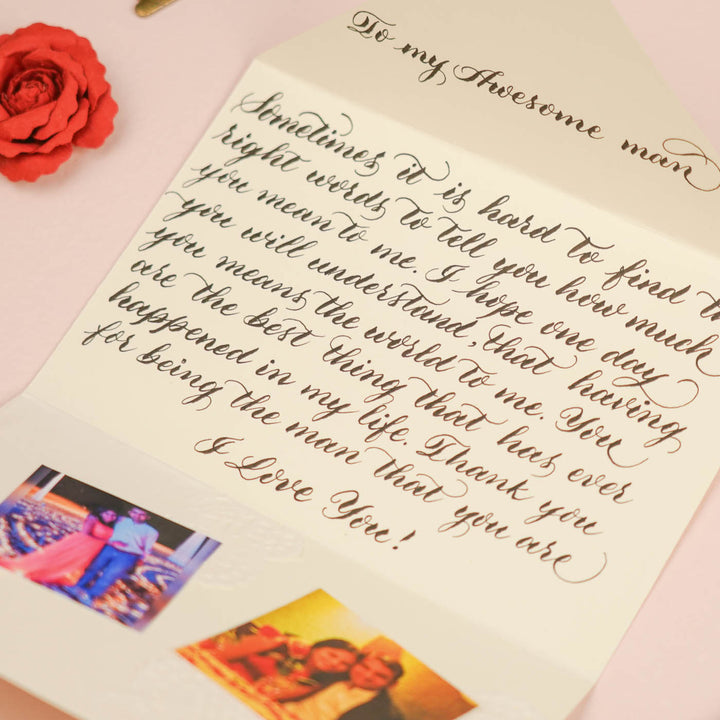 To my Awesome man
Sometimes it is hard to find th
right words to tell you how much
you mean to me. I hope one day
you will understand, that having
you means the world to me. You
are the best thing that has ever
happened in my life. Thank you
for being the man that you are
I Love You!